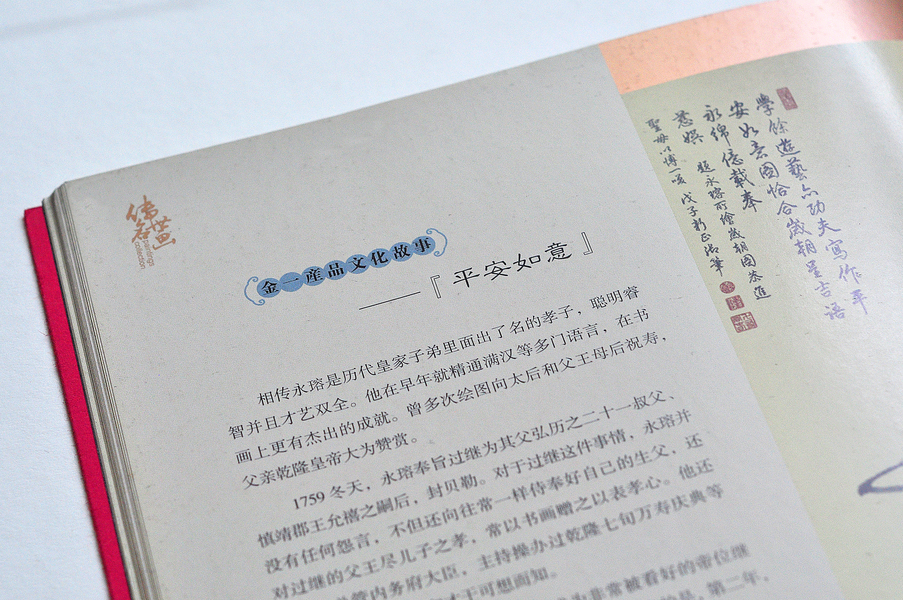 传世名画
金一產品文化故事
——『平安如意』
相传永瑢是历代皇家子弟里面出了名的孝子，聪明睿
智并且才艺双全。他在早年就精通满汉等多门语言，在书
画上更有杰出的成就。曾多次绘图向太后和父王母后祝寿，
父亲乾隆皇帝大为赞赏。
1759 冬天，永瑢奉旨过继为其父弘历之二十一叔父、
慎靖郡王允禧之嗣后，封贝勒。对于过继这件事情，永瑢并
没有任何怨言，不但还向往常一样侍奉好自己的生父，还
对过继的父王尽儿子之孝，常以书画赠之以表孝心。他还
总管内务府大臣，主持操办过乾隆七旬万寿庆典等
才干可想而知。
为非常被看好的帝位继
是，第二年，
學餘遊藝亦功夫寫作平
安如意圖恰合歲朝呈吉語
永綿億載奉
慈娛 題永瑢所繪歲朝圖恭進
聖母以博一粲 戊子新正御筆